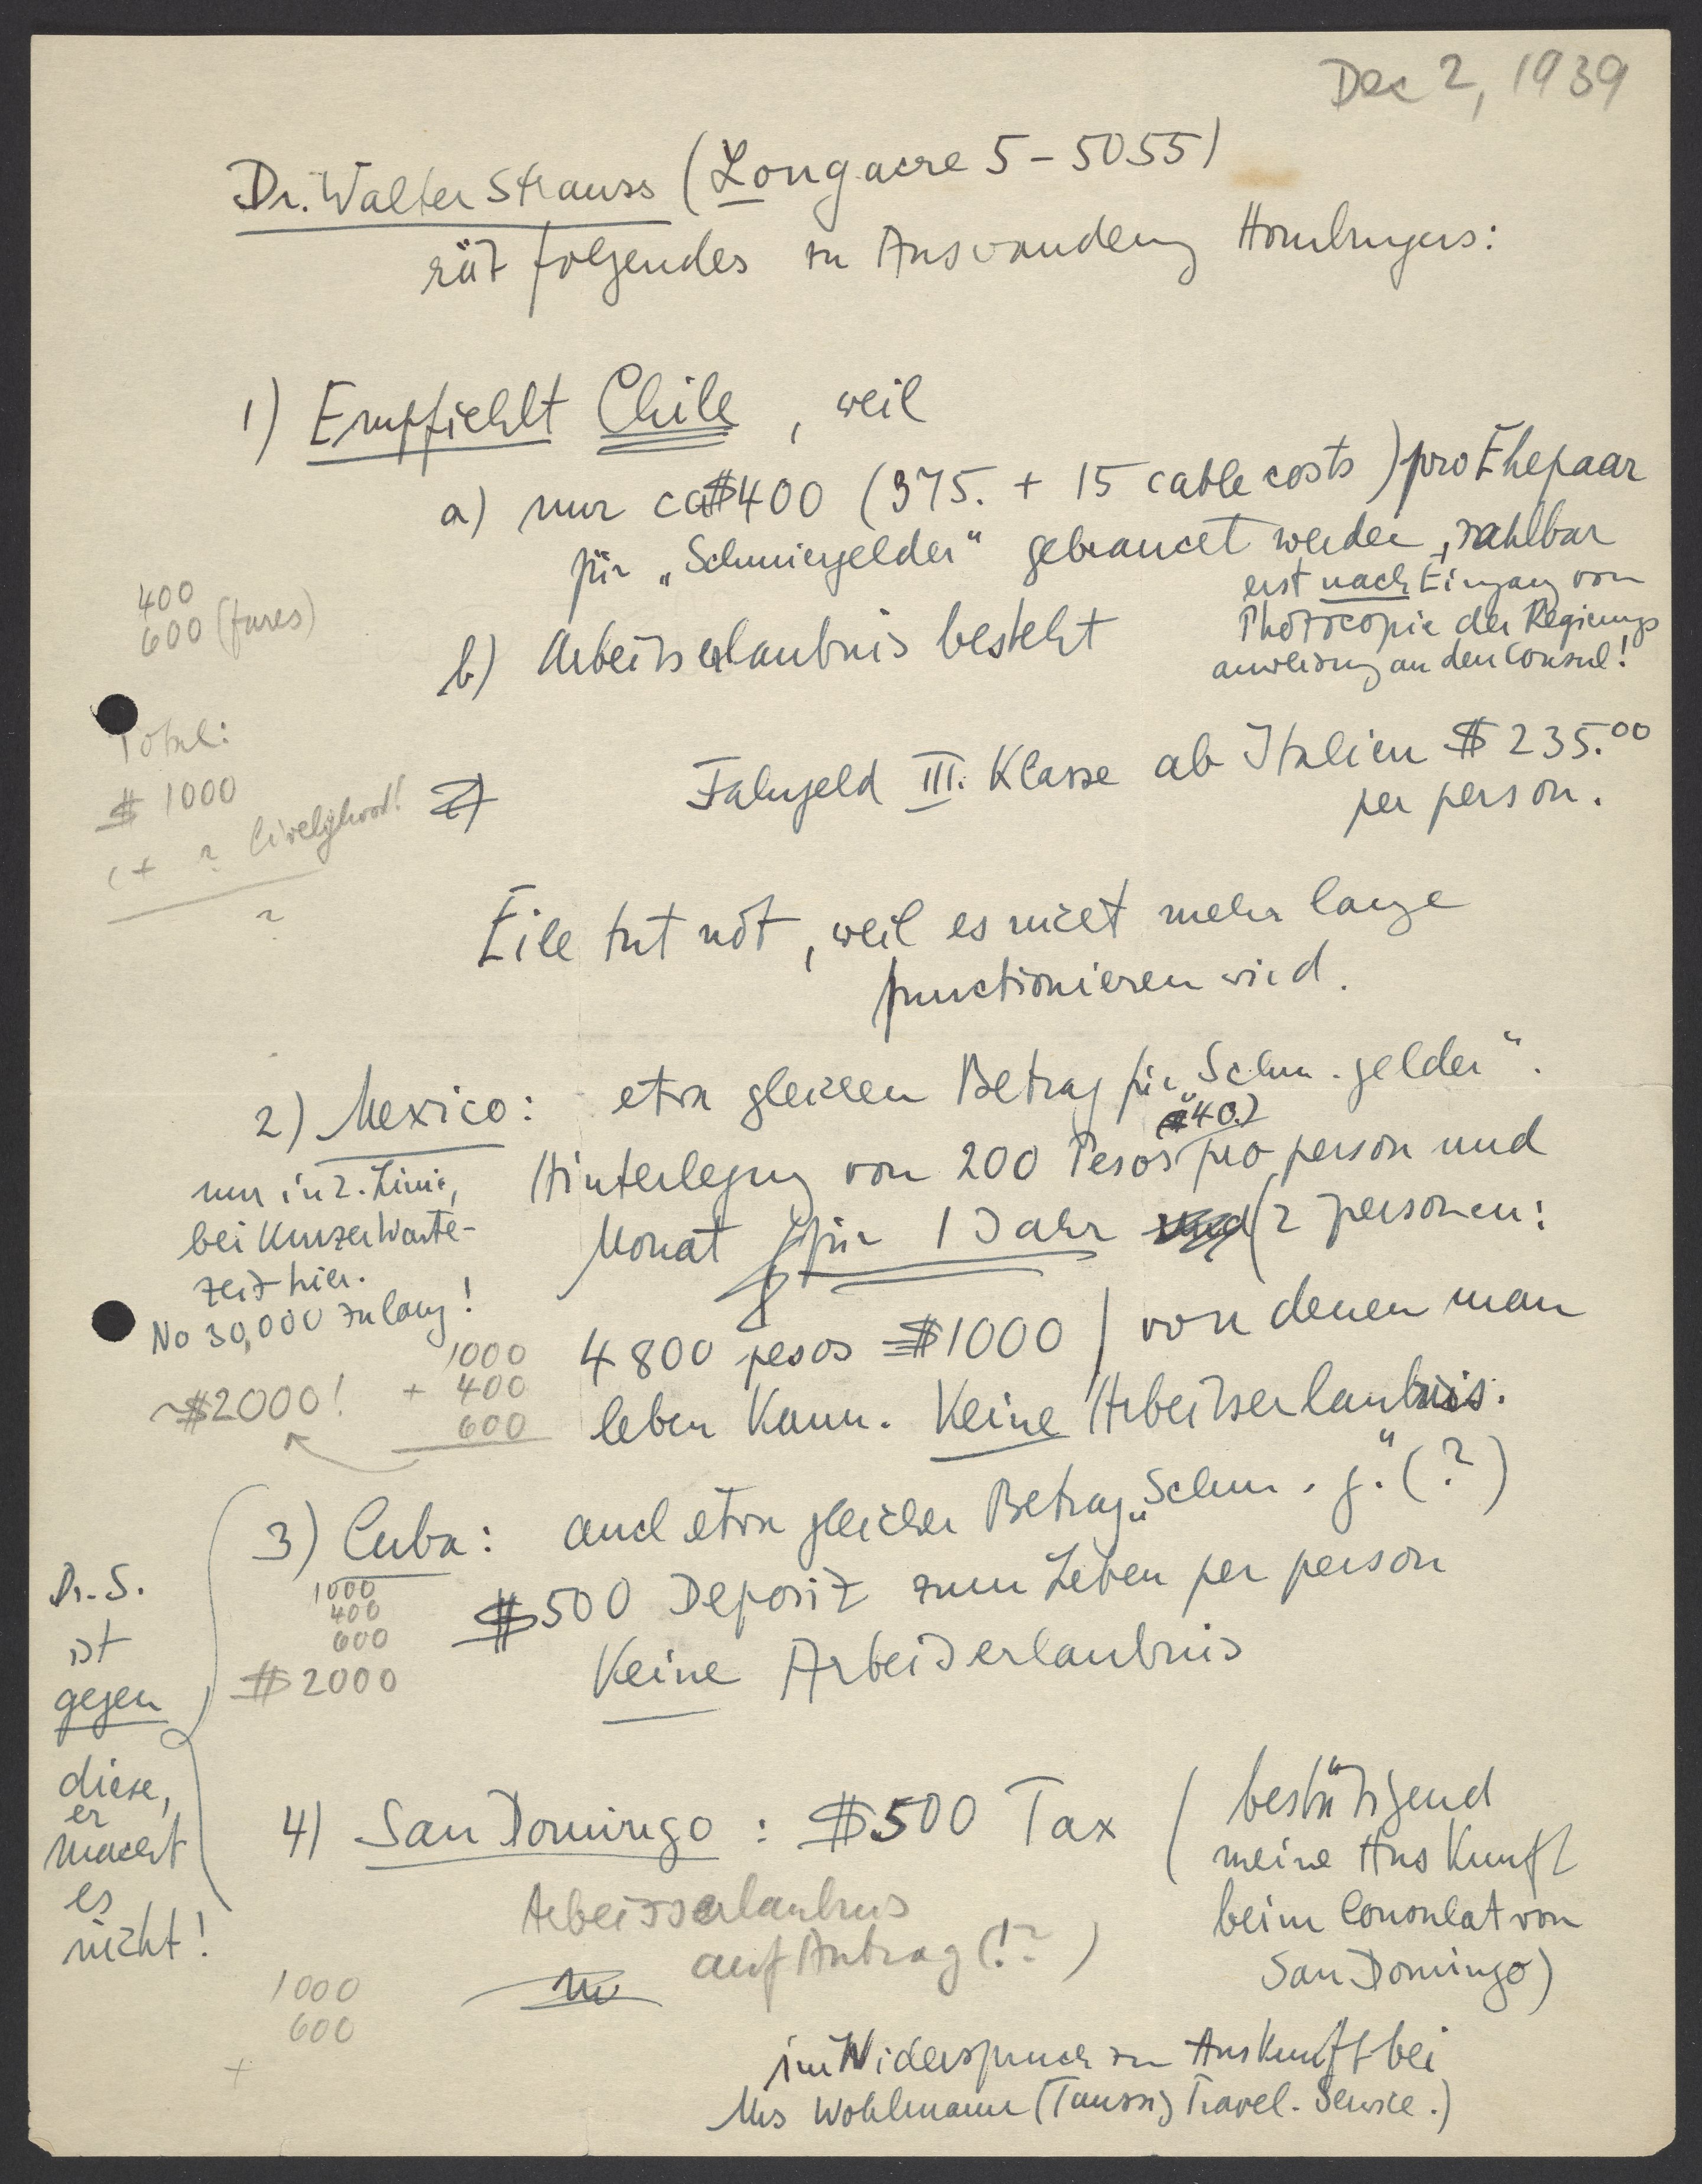 Dec 2, 1939
Dr. Walter Strauss (Longacre 5-5055)
rät folgendes zu Auswanderung Homburgers:
1) Empfiehlt Chile, weil
a) nur ca $400 (375. + 15 cable costs) pro Ehepaar
für "Schmiergelder" gebraucht werden, zahlbar
erst nach Eingang von
Photocopie der Regierungs
anweisung an den Consul!
400
600 (fares)
b) Arbeitserlaubnis besteht
Total:
$ 1000
(+ ? livelyhood!
?
Fahrgeld III. Klasse ab Italien $ 235.00
per person.
Eile tut not, weil es nicht mehr lange
functionieren wird.
2) Mexico: etwa gleichen Betrag für "Schm.gelder".
nur in 2. Linie,
bei kurzer Warte-
zeit hier.
No 30,000 zu lang!
Hinterlegung von 200 Pesos ($40.) pro person und
Monat für 1 Jahr (2 personen:
4800 pesos = $1000) von denen man
leben kann. Keine Arbeitserlaubnis.
1000
+ 400
600
~$2000!
3) Cuba: auch etwa gleicher Betrag "Schm.g." (?)
1000
400
600
$ 2000
$500 Deposit zum Leben per person
Keine Arbeitserlaubnis
Dr. S.
ist
gegen
diese,
er
macht
es
nicht!
4) San Domingo: $500 Tax
(bestätigend
meine Auskunft
beim Consulat von
San Domingo)
Arbeitserlaubnis
auf Antrag (!?)
1000
600
+
im Widerspruch zu Auskunft bei
Mrs Wohlmann (Taussig Travel-Service.)